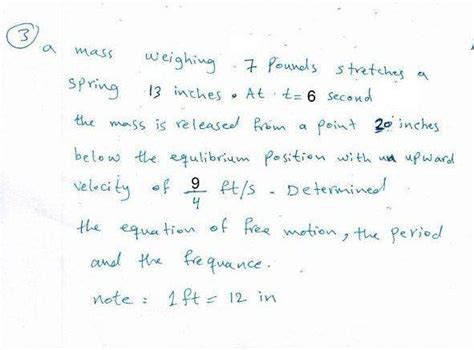 3
a mass weighing 7 Pounds stretches a
spring 13 inches. At t= 6 second
the mass is released from a point 20 inches
below the equlibrium Position with un upward
velocity of 9/4 ft/s . Determined
the equation of free motion, the Period
and the frequance.
note : 1 ft = 12 in